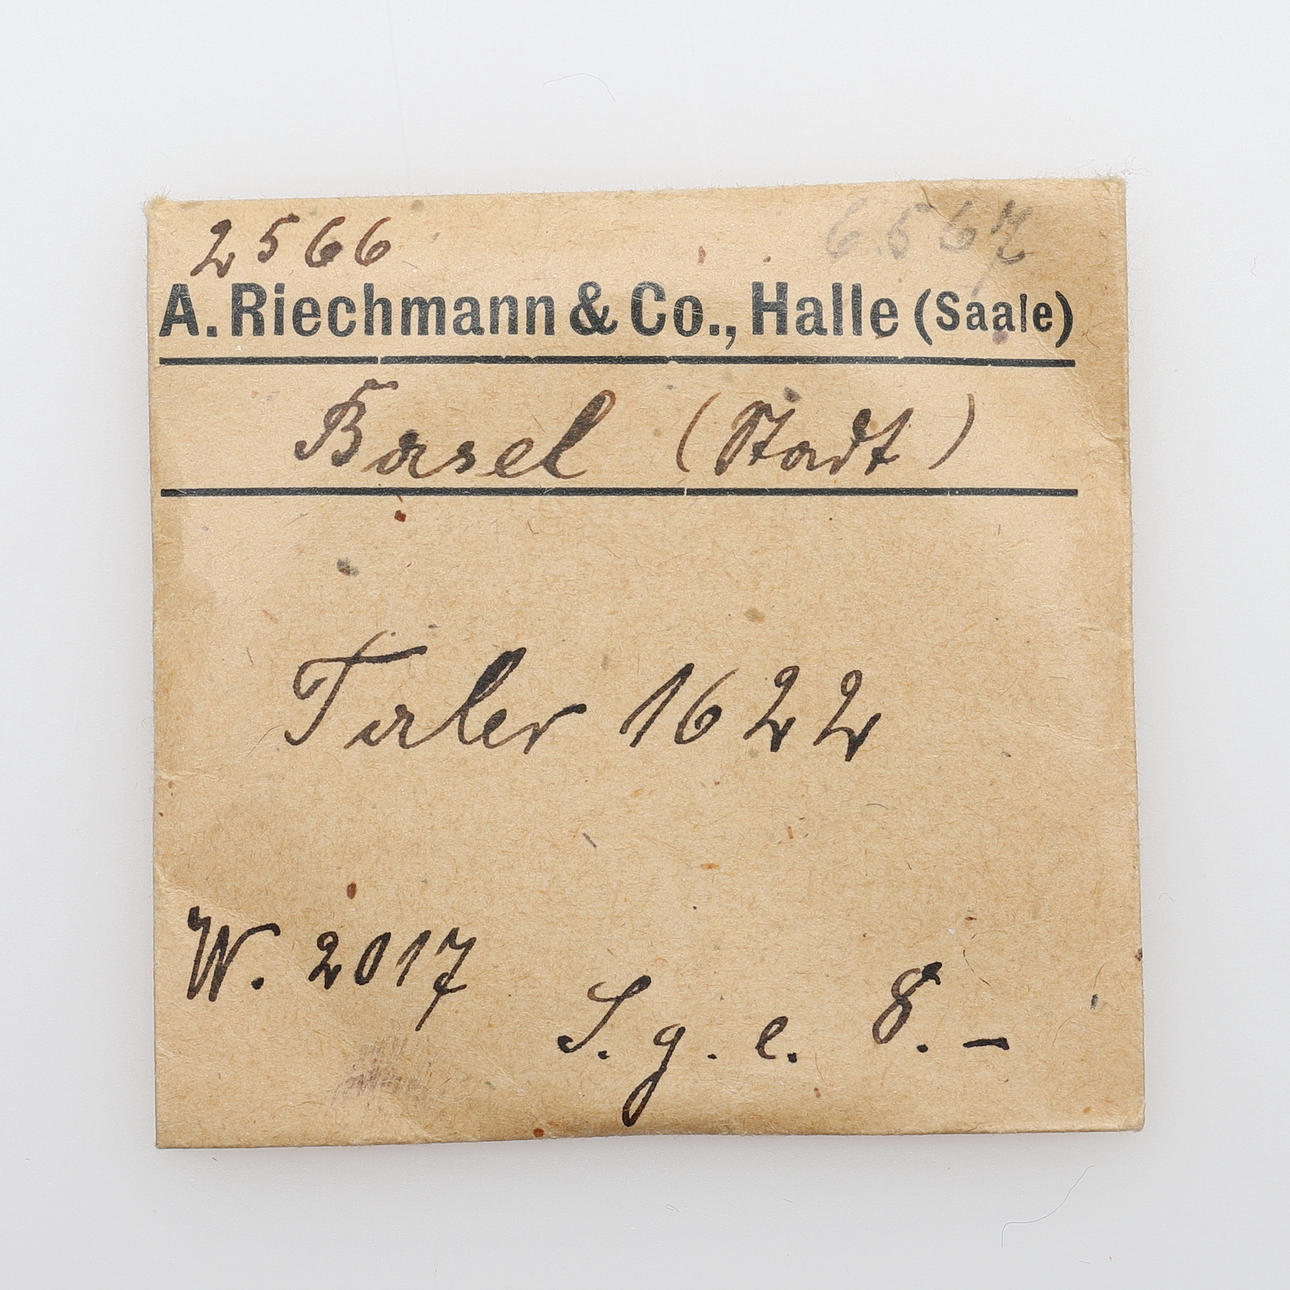 2566 6567
A. Riechmann & Co., Halle (Saale)
Basel (Stadt)
Taler 1622
W. 2017
S. g. e. 8. –